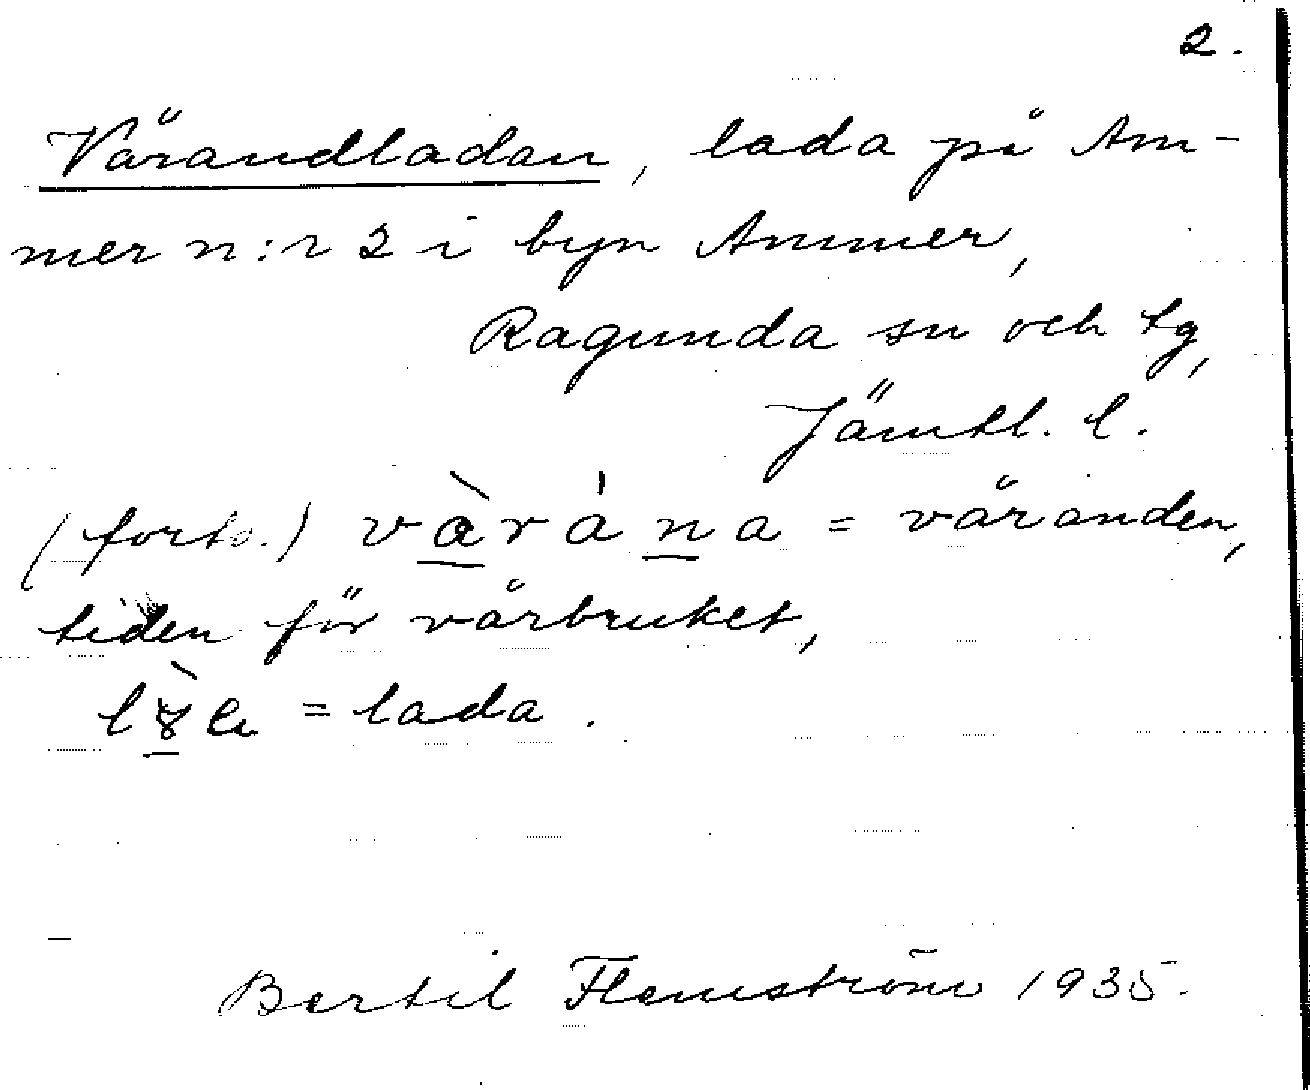 2.
Vårandladan, lada på Am-
mer n:r 2 i byn Ammer,
Ragunda sn och tg,
Jämtl. l.
(forts.) = våranden,
tiden för vårbruket,
= lada.
Bertil Flemström 1935.